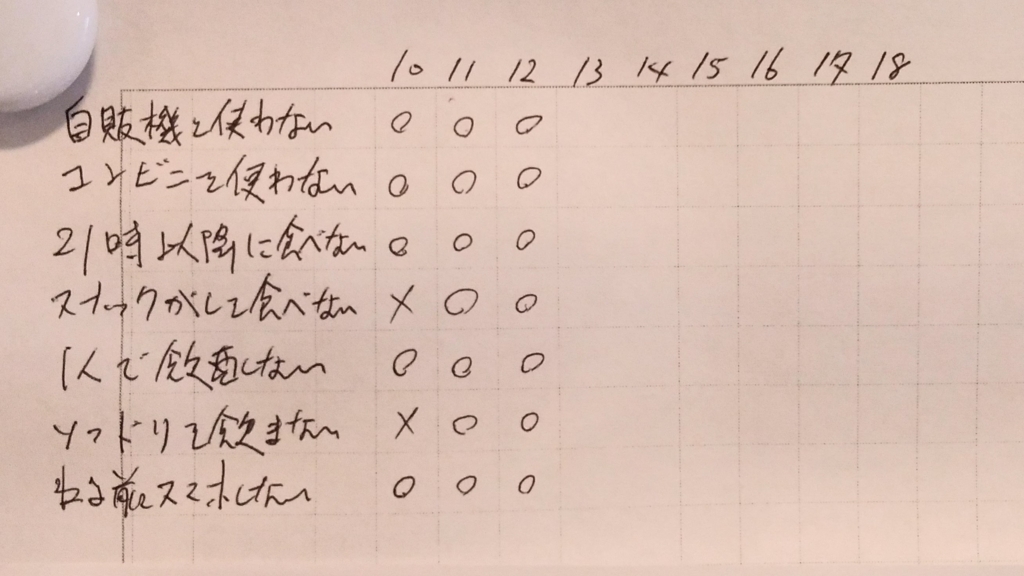 10 11 12 13 14 15 16 17 18
自販機を使わない ○ ○ ○
コンビニを使わない ○ ○ ○
21時以降に食べない ○ ○ ○
スナックがしを食べない × ○ ○
1人で飲酒しない ○ ○ ○
ソフドリを飲まない × ○ ○
ねる前にスマホしない ○ ○ ○